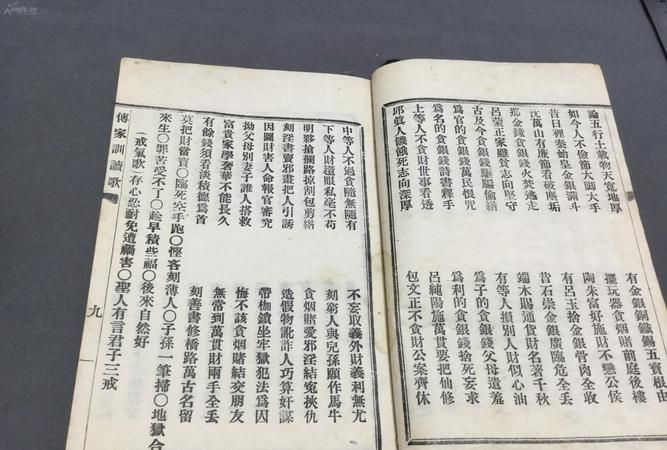 論五行土載物天寬地厚
有金銀銅鐵錫五寶根由
如今人不倫簡大脚大手
擺玩器貪烟賭前庭後樓
昔日裡秦始皇金銀滿斗
陶朱富好施財不戀公侯
沈萬山有廉簡看破塵垢
有呂玉捨金銀骨肉全收
那金錢貪銀錢火焚逃走
昔石崇金銀廣臨危全丢
呂蒙正家雖貧志向堅守
端木賜通貨財名著千秋
古及今貪銀錢騙騙偷綹
有等人損別人財似心油
為官的貪銀錢萬民恨咒
為子的貪銀錢父母遺羞
為名的貪銀錢詩書釋手
為利的貪銀錢捨死妄求
上等人不貪財世事看透
呂純陽施萬貫要把仙修
邱真人饑餓死志向深厚
包文正不貪財公案齊休
中等人不過貪隨無隨有
不妄取義外財義利無尤
下等人財還眼私毫不苟
刻窮人與兒孫願作馬牛
明夥搶攔路掠割包剪綹
貪烟賭愛邪淫結寃挾仇
刻淫書賣邪畫把人引誘
造假物訛詐人巧算奸謀
因圖財害人命報官審究
帶枷鎖坐牢獄犯法為囚
拋父母別妻子誰人搭救
悔不該貪烟賭結交朋友
富貴家學奢華不能長久
無常到萬貫財兩手全丢
有餘錢須看淡積德為首
刻善書修橋路萬古名留
莫把財當寶〇臨死空手跑〇慳吝刻薄人〇子孫一筆掃〇地獄合
來生〇罪苦受不了〇趁早積些福〇後來自然好
(戒氣歌)有心忿耐免遭禍害〇聖人有言君子三戒
傳家訓讀歌
九